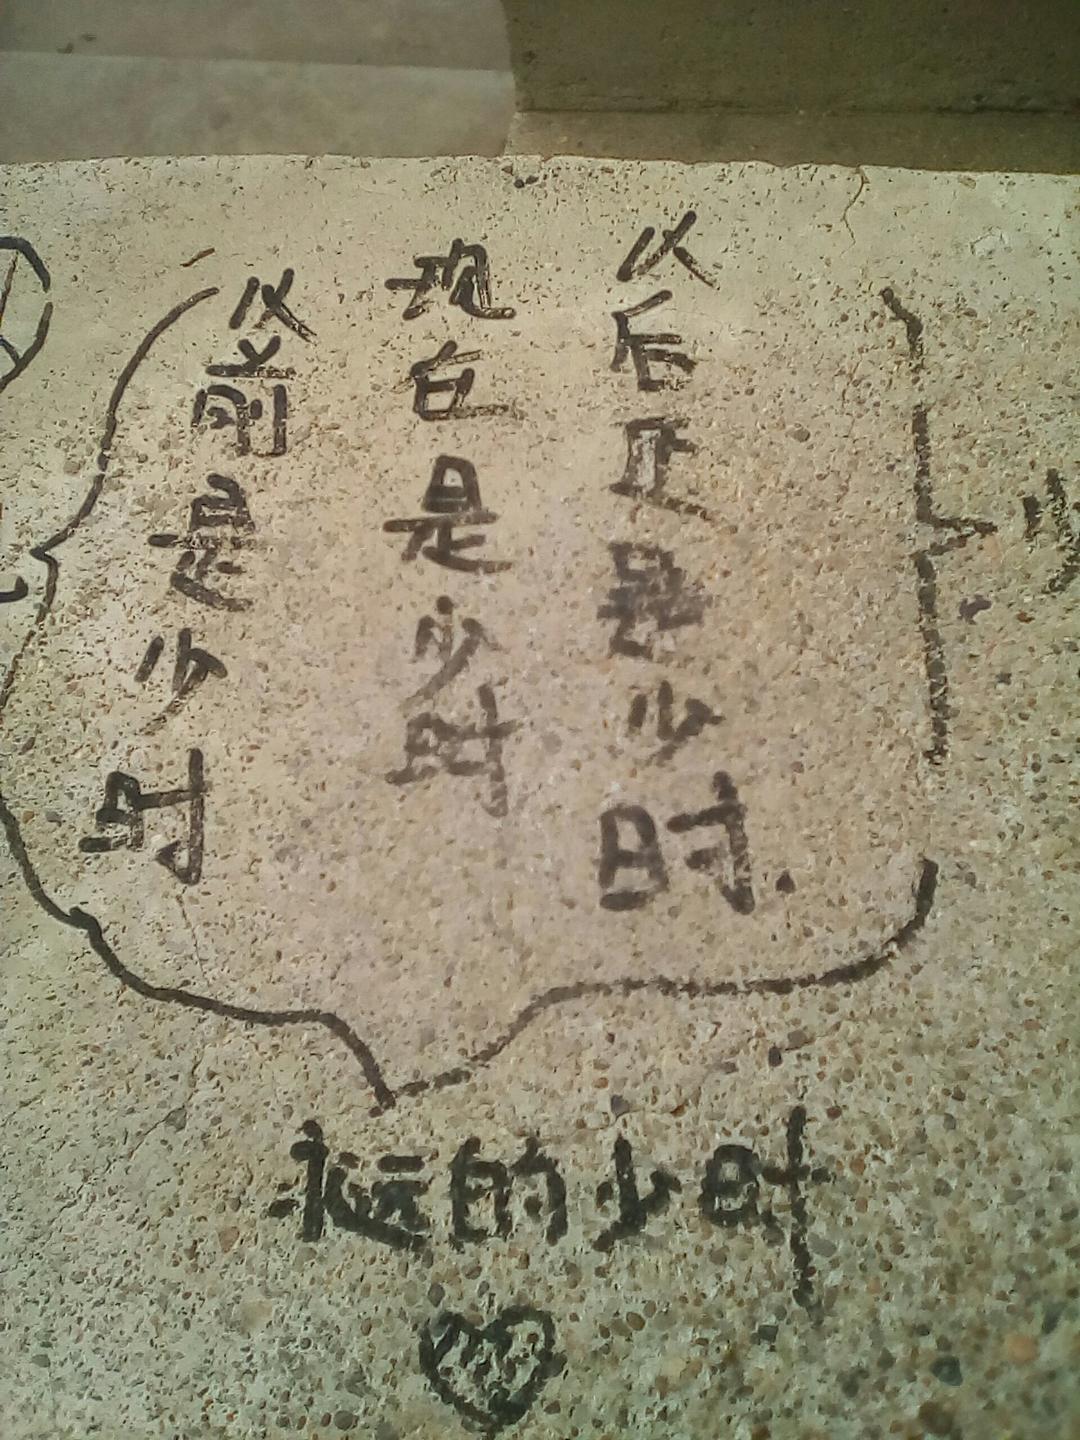 以前是少时
现在是少时
以后还是少时.
永远的少时
少